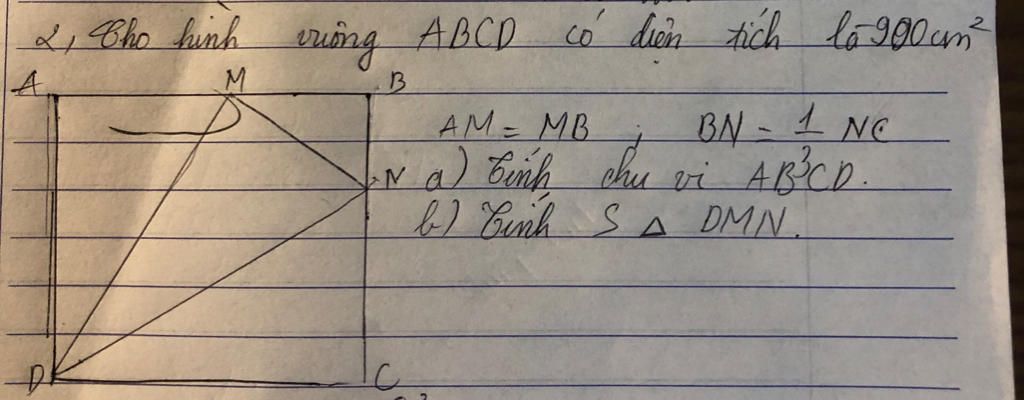 2, Cho hình vuông ABCD có diện tích là 900cm²
A M B
AM = MB ; BN = 1/3 NC
N a) Tính chu vi ABCD.
b) Tính S △ DMN.
D C